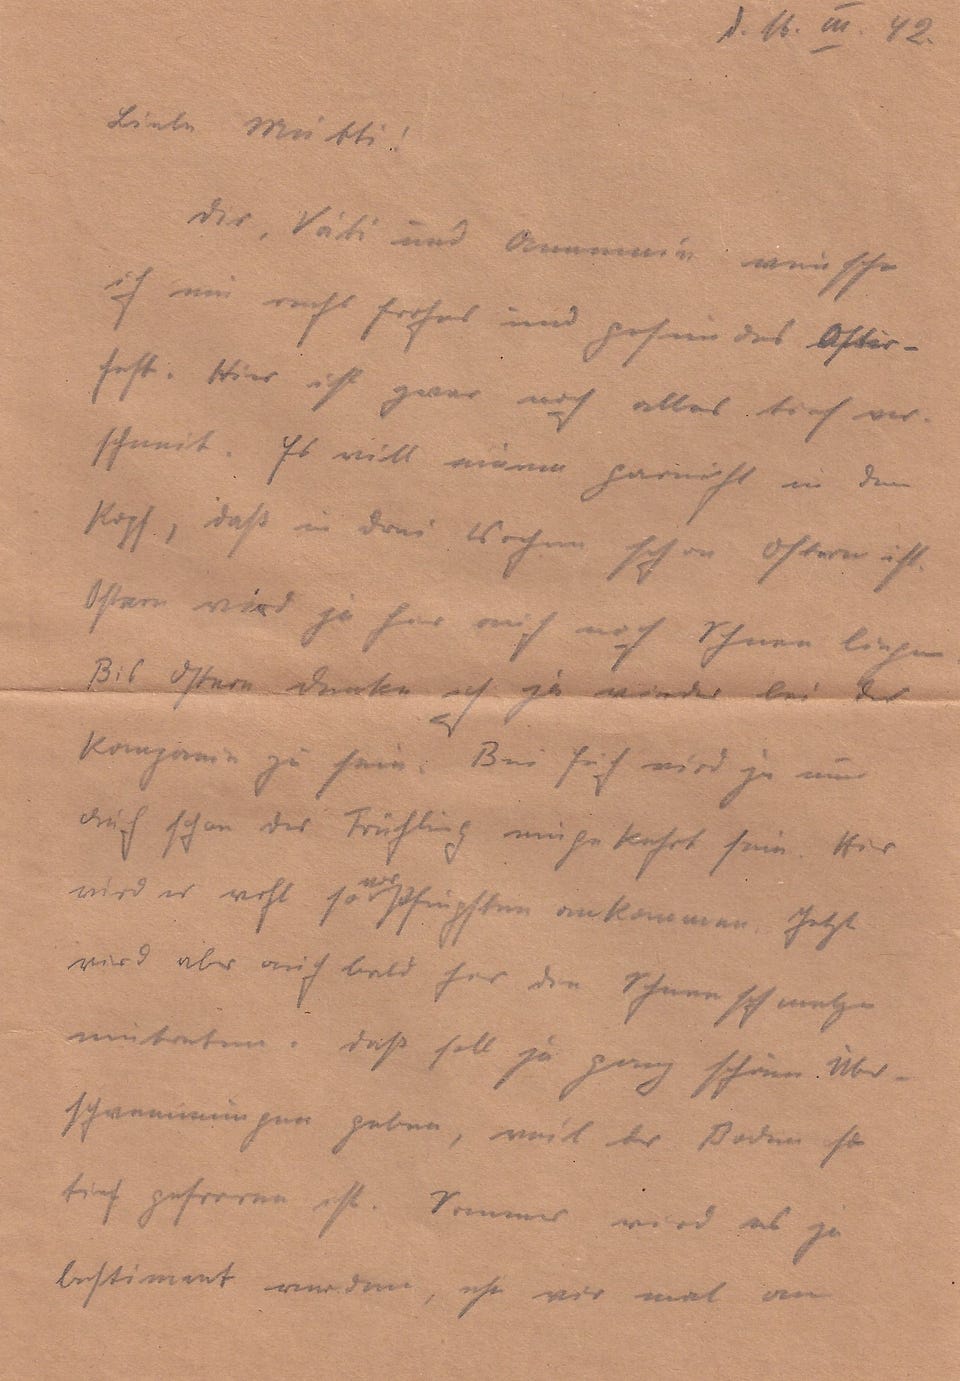 d. 16. III. 42.
Liebe Mutti!
Dir, Vati und Annemarie wünsche
ich ein recht frohes und gesundes Oster-
fest. Hier ist zwar noch alles tief ver-
schneit. Es will einem garnicht in den
Kopf, daß in drei Wochen schon Ostern ist.
Ostern wird ja hier auch noch Schnee liegen.
Bis Ostern denke ich ja wieder bei der
Kompanie zu sein. Bei Euch wird ja nun
auch schon der Frühling eingekehrt sein. Hier
wird er wohl so vor Pfingsten ankommen. Jetzt
wird aber auch bald hier den Schneeschmelze
eintreten. Daß soll ja ganz schöne Über-
schwemmungen geben, weil der Boden so
tief gefroren ist. Sommer wird es ja
bestimmt werden, ehe wir mal an